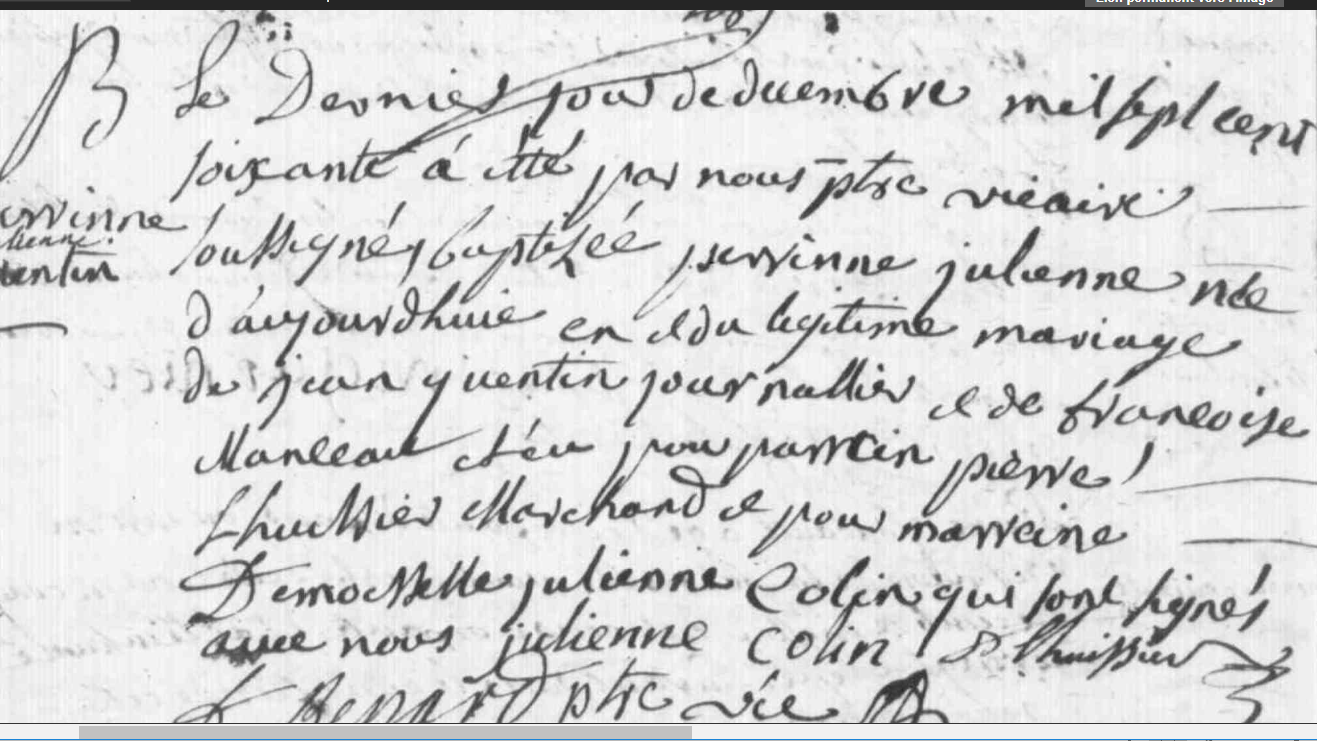 Lien permanent vers l'image
B
Le Dernier jour de decembre mil sept cent
soixante á été par nous ptre vicaire
soussigné, baptisée perrinne julienne née
d'aujourdhuie en et du legitime mariage
de jean quentin journallier et de francoise
Manceau et a eu pour parrein pierre
Lhuissier Marchand et pour marreine
Demoiselle julienne Colin qui sont signés
avec nous julienne Colin P Lhuissier
ptre vic
perrinne
julienne
quentin